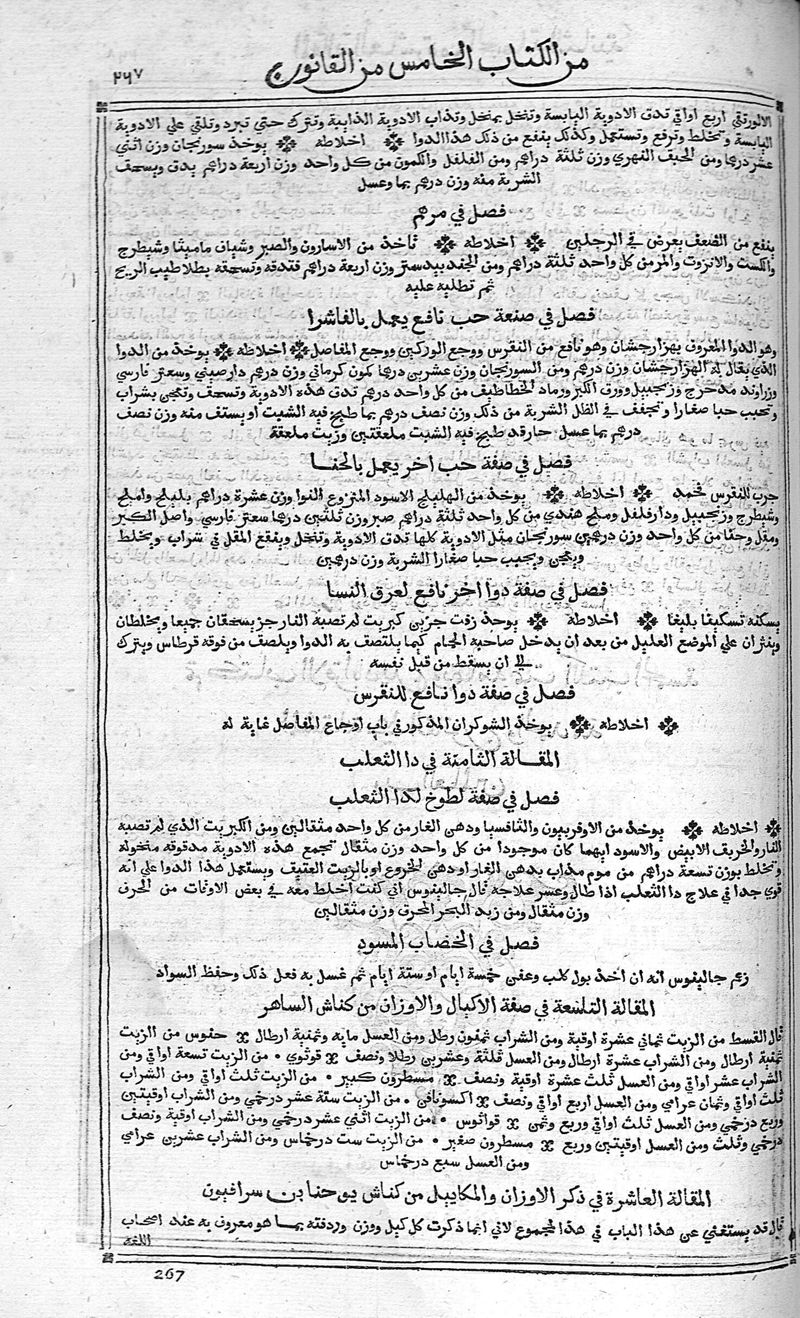 من الكتاب الخامس من القانون
٢٦٧
اربع اواقي تدق الادوية اليابسة وتنخل بمنخل وتذاب الادوية الذايبة وتترك حتى تبرد وتلقي علي الادوية
اليابسة وتخلط وترفع وتستعمل وكذلك ينفع من ذلك هذا الدوا ❊ اخلاطه ❊ يوخذ سورنجان وزن اثني
عشر درهما ومن الحبق النهري وزن ثلثة دراهم ومن الفلفل والكمون من كل واحد وزن اربعة دراهم يدق ويسحق
الشربة منه وزن درهم بما وعسل
فصل في مرهم
ينفع من الضعف يعرض في الرجلين ❊ اخلاطه ❊ تاخذ من الاسارون والصبر وشياف ماميثا وشيطرج
والكست والانزروت والمر من كل واحد ثلثة دراهم ومن الجندبيدستر وزن اربعة دراهم فتدقه وتسحقه بطلا طيب الريح
ثم تطليه عليه
فصل في صنعة حب نافع يعمل بالفاشرا
وهو الدوا المعروف بهزارجشان وهو نافع من النقرس ووجع الوركين ووجع المفاصل ❊ اخلاطه ❊ يوخذ من الدوا
الذي يقال له الهزارجشان وزن درهم ومن السورنجان وزن عشرين درهما كمون كرماني وزن درهم دارصيني وسعتر فارسي
وزراوند مدحرج وزنجبيل وورق الكبر ورماد الخطاطيف من كل واحد درهم تدق هذه الادوية وتسحق وتعجن بشراب
وتحبب حبا صغارا وتجفف في الظل الشربة من ذلك وزن نصف درهم بما طبخ فيه الشبت او يستف منه وزن نصف
درهم بما عسل حار قد طبخ فيه الشبت ملعقتين وزيت ملعقة
فصل في صفة حب اخر يعمل بالحنا
جرب للنقرس فحمد ❊ اخلاطه ❊ يوخذ من الهليلج الاسود المنزوع النوا وزن عشرة دراهم بليلج واملج
وشيطرج وزنجبيل ودارفلفل وملح هندي من كل واحد ثلثة دراهم صبر وزن ثلثين درهما سعتر فارسي واصل الكبر
ومقل وحنا من كل واحد وزن درهمين سورنجان مثل الادوية كلها تدق الادوية وتنخل وينقع المقل في شراب ويخلط
ويعجن ويحبب حبا صغارا الشربة وزن درهمين
فصل في صفة دوا اخر نافع لعرق النسا
يسكنه تسكينا بليغا ❊ اخلاطه ❊ يوخذ زفت جزين كبريت لم تصبه النار جز يسحقان جميعا ويخلطان
وينثران علي الموضع العليل من بعد ان يدخل صاحبه الحمام كيما يلتصف به الدوا ويلصف من فوقه قرطاس ويترك
الي ان يسقط من قبل نفسه
فصل في صفة دوا نافع للنقرس
❊ اخلاطه ❊ يوخذ الشوكران المذكور في باب اوجاع المفاصل غاية له
المقالة الثامنة في دا الثعلب
فصل في صفة لطوخ لدا الثعلب
❊ اخلاطه ❊ يوخذ من الاوفربيون والثافسيا ودهن الغار من كل واحد مثقالين ومن الكبريت الذي لم تصبه
النار والخربق الابيض والاسود ايهما كان موجودا من كل واحد وزن مثقال تجمع هذه الادوية مدقوقة منخولة
وتخلط بوزن تسعة دراهم من موم مذاب بدهن الغار او دهن الخروع او بالزيت العتيق ويستعمل هذا الدوا علي انه
قوي جدا في علاج دا الثعلب اذا طال وعسر علاجه قال جالينوس اني كنت اخلط معه في بعض الاوقات من الحرف
وزن مثقال ومن زبد البحر المحرق وزن مثقالين
فصل في الخضاب المسود
زعم جالينوس انه ان اخذ بول كلب وعفن خمسة ايام او ستة ايام ثم غسل به فعل ذلك وحفظ السواد
المقالة التاسعة في صفة الاكيال والاوزان من كناش الساهر
قال القسط من الزيت ثماني عشرة اوقية ومن الشراب ثمنون رطل ومن العسل مايه وثمنية ارطال ⌘ حنوس من الزيت
ثمنية ارطال ومن الشراب عشرة ارطال ومن العسل ثلثة وعشرين رطلا ونصف ⌘ قوثوي • من الزيت تسعة اواقي ومن
الشراب عشر اواقي ومن العسل ثلث عشرة اوقية ونصف ⌘ مسطرون كبير • من الزيت ثلث اواقي ومن الشراب
ثلث اواقي وثمان غرامي ومن العسل اربع اواقي ونصف ⌘ اكسونافن • من الزيت ستة عشر درخمي ومن الشراب اوقيتين
وربع درخمي ومن العسل ثلث اواقي وربع وثمن ⌘ قواثوس • من الزيت اثني عشر درخمي ومن الشراب اوقية ونصف
درخمي وثلث ومن العسل اوقيتين وربع ⌘ مسطرون صغير • من الزيت ست درخماس ومن الشراب عشرين غرامي
ومن العسل سبع درخماس
المقالة العاشرة في ذكر الاوزان والمكاييل من كناش يوحنا بن سرافيون
قال قد يستغني عن هذا الباب في هذا المجموع لاني انما ذكرت كل كيل ووزن وردفته بما هو معروف به عند اصحاب
اللغة
267